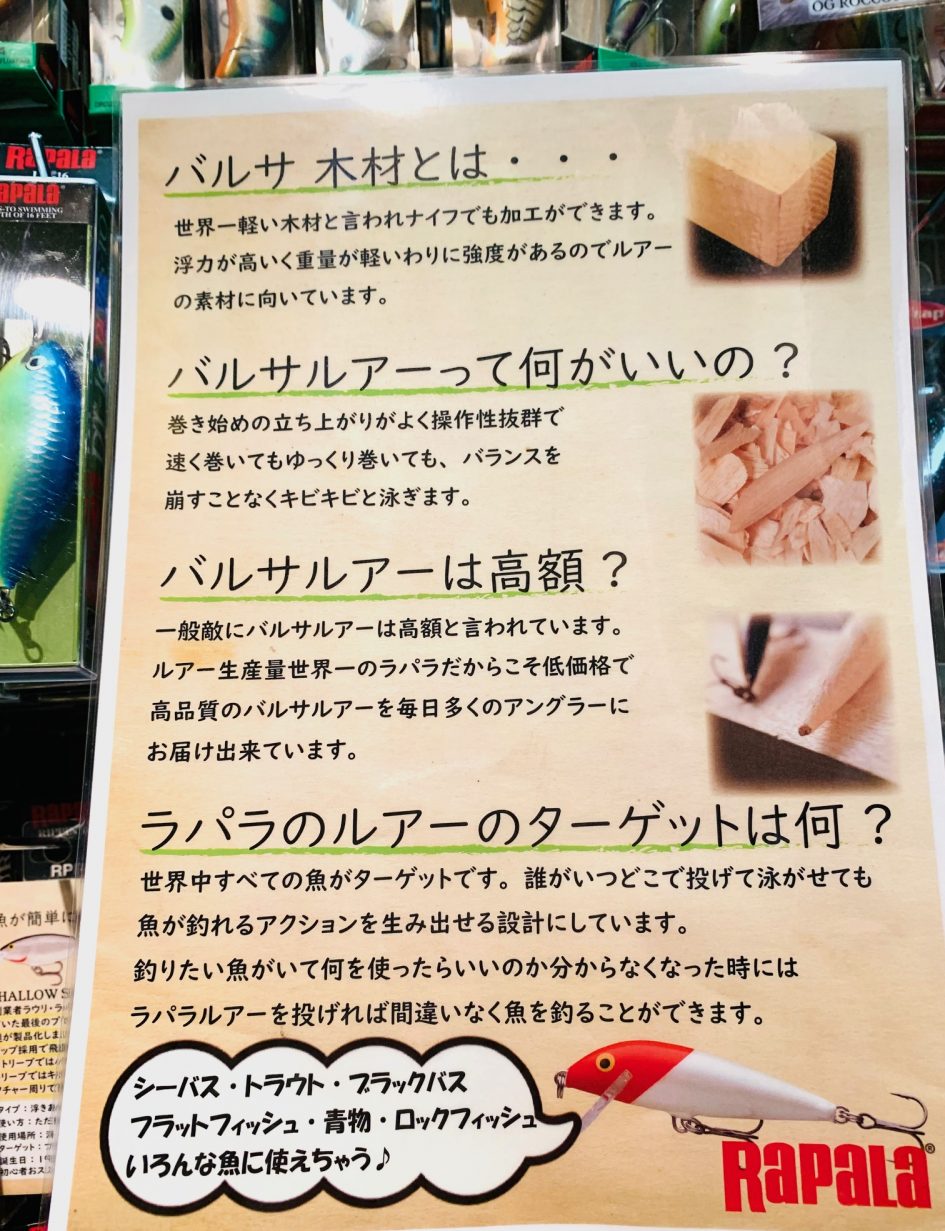 OG ROCCO
RAPALA
16
RAPALA
S-TO SWIMMING
TH OF 16 FEET
バルサ 木材とは・・・
世界一軽い木材と言われナイフでも加工ができます。
浮力が高いく重量が軽いわりに強度があるのでルアー
の素材に向いています。
バルサルアーって何がいいの？
巻き始めの立ち上がりがよく操作性抜群で
速く巻いてもゆっくり巻いても、バランスを
崩すことなくキビキビと泳ぎます。
バルサルアーは高額？
一般敵にバルサルアーは高額と言われています。
ルアー生産量世界一のラパラだからこそ低価格で
高品質のバルサルアーを毎日多くのアングラーに
お届け出来ています。
ラパラのルアーのターゲットは何？
世界中すべての魚がターゲットです。誰がいつどこで投げて泳がせても
魚が釣れるアクションを生み出せる設計にしています。
釣りたい魚がいて何を使ったらいいのか分からなくなった時には
ラパラルアーを投げれば間違いなく魚を釣ることができます。
シーバス・トラウト・ブラックバス
フラットフィッシュ・青物・ロックフィッシュ
いろんな魚に使えちゃう♪
RAPALA®
RAPALA
RP
魚が簡単に
HALLOW S
業者ラウリ・ラ
いた最後のプ
が製品化しま
ップ採用で飛
トリープでは
リープではキ
チャー周りで
タイプ：浮き
使い方：ただ
使用場所：
ターゲット：
誕生日：1
初心者おス